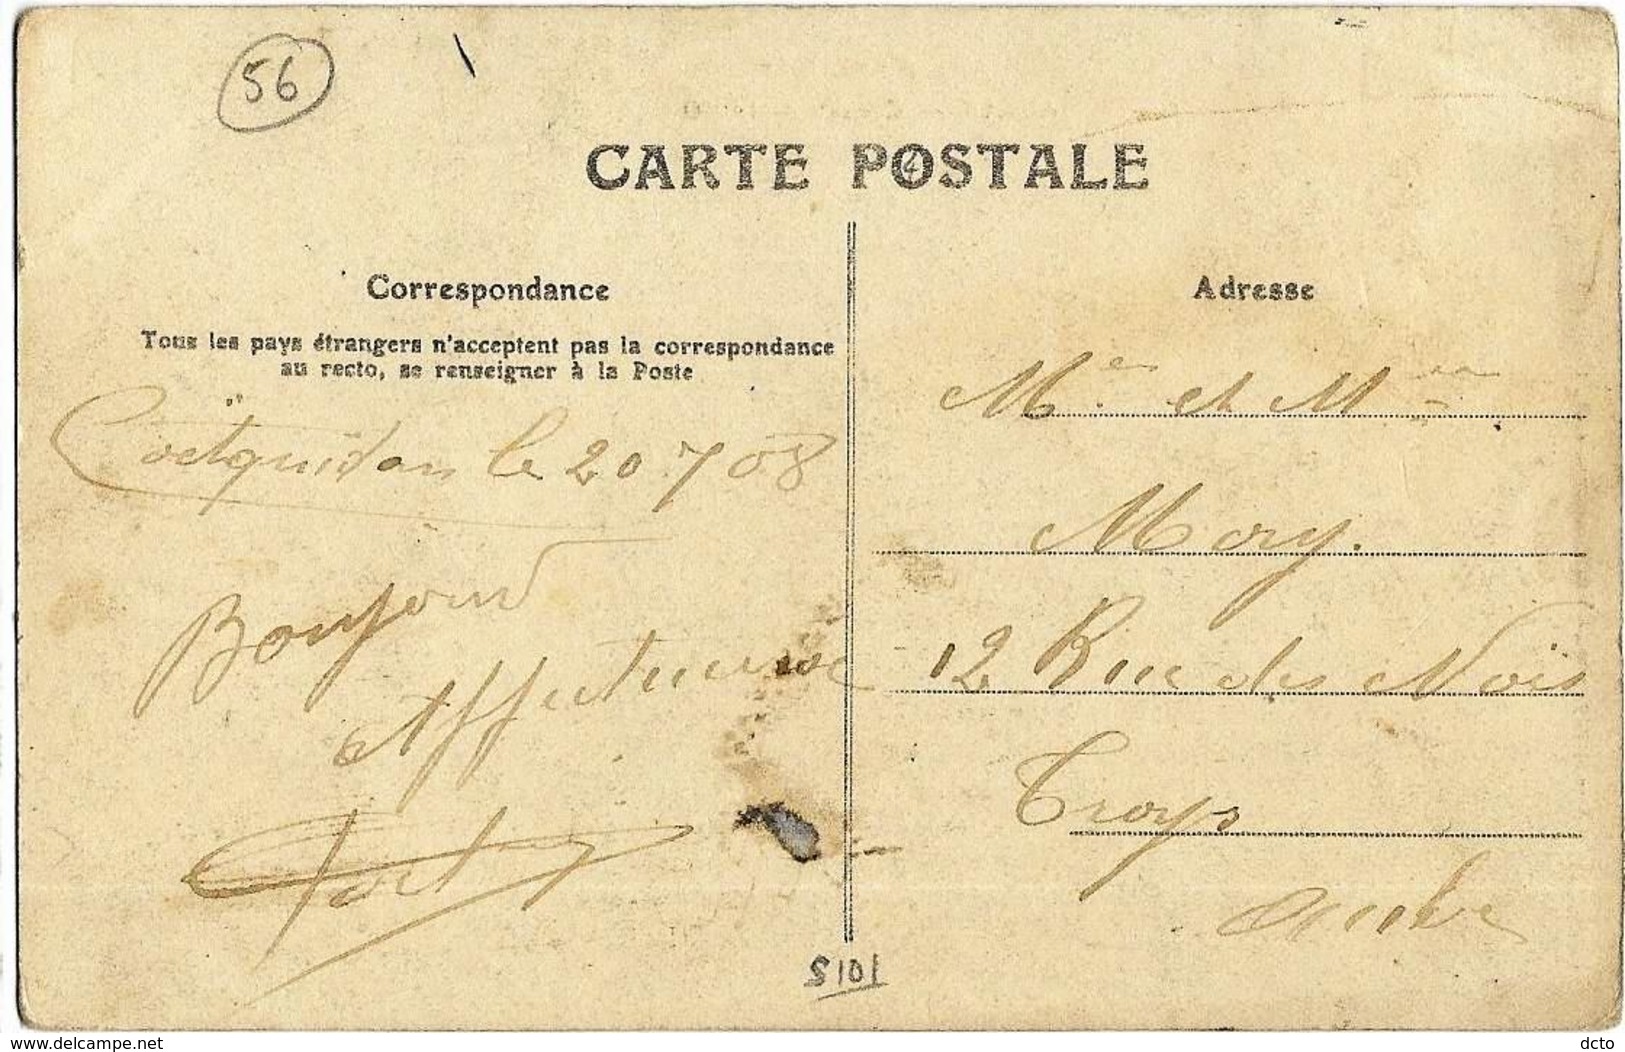 56
CARTE POSTALE
Correspondance
Tous les pays étrangers n'acceptent pas la correspondance
au recto, se renseigner à la Poste
Coëtquidan le 20.7 08
Bonjour
Affectueuse
Adresse
Mr et Mme
Mory.
12 Rue des Noës
Troys
Aube
5101
www.delcampe.net
dcto